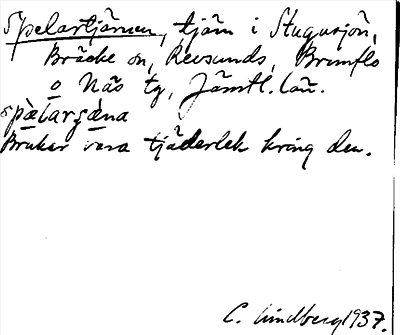 Spelartjärnen, tjärn i Stugusjön,
Bräcke sn, Revsunds, Brunflo
o Näs tg, Jämtl. län.
spὲlargæ̀na
Brukar vara tjäderlek kring den.
C. Lindberg 1937.